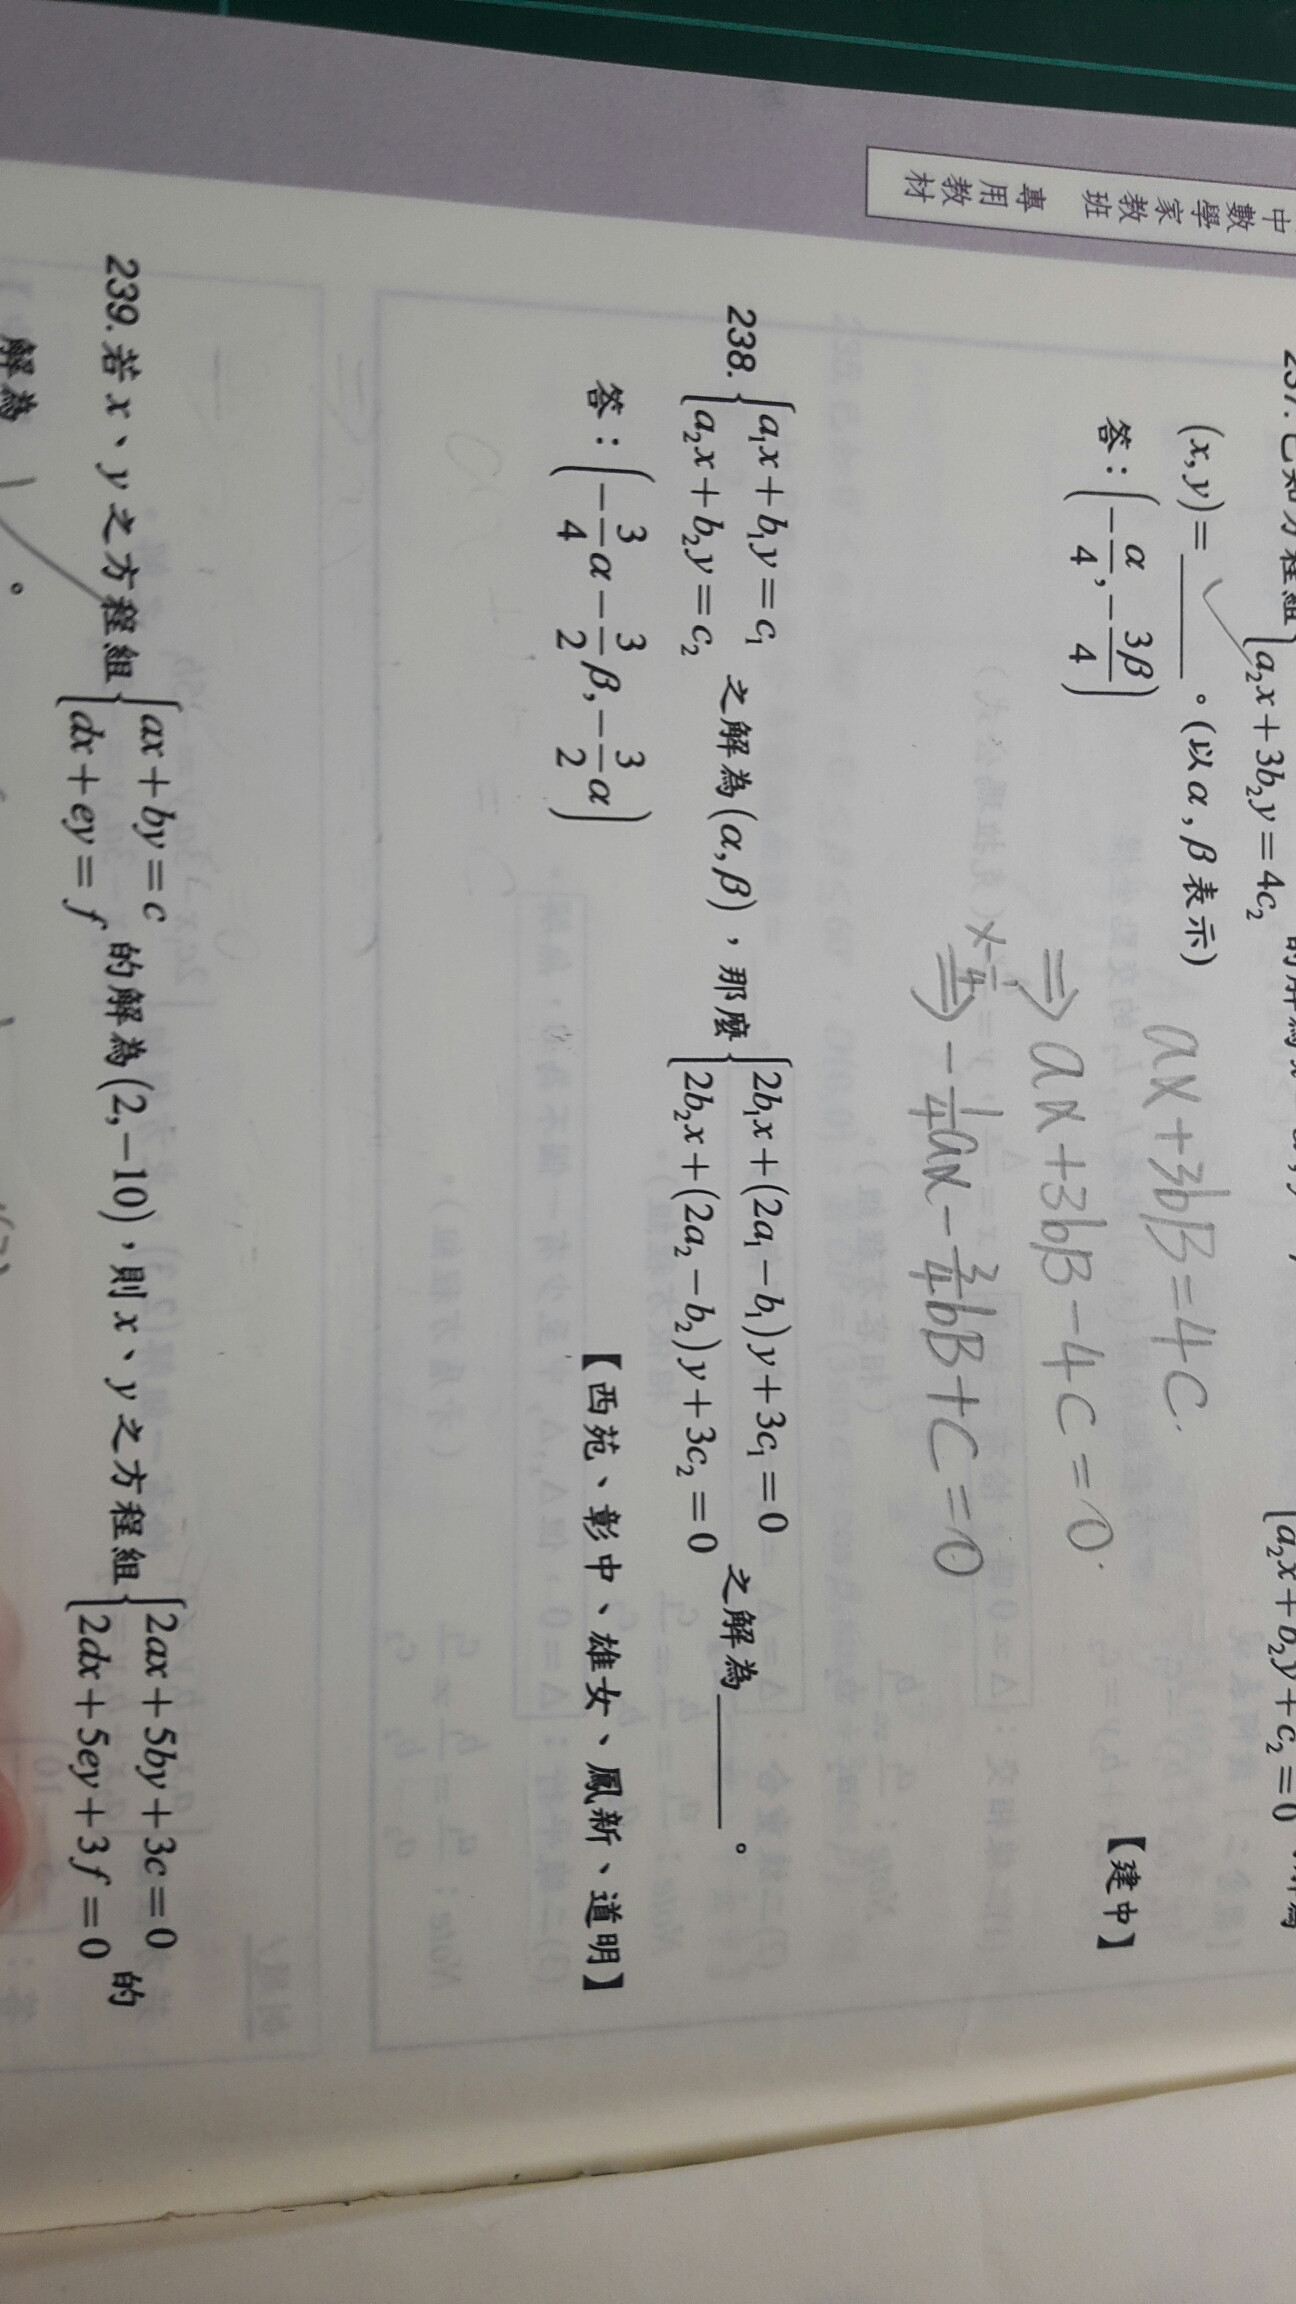 中
數
學
家
教
班
專
用
教
材
237. 已知方程組
a₂x+3b₂y=4c₂
a₂x+b₂y+c₂=0
(x,y)=______。(以α,β表示)
答:(-α/4,-3β/4)
【建中】
aα+3bβ=4c.
⇒ aα+3bβ-4c=0.
×-1/4
⇒ -1/4aα-3/4bβ+c=0
238. {a₁x+b₁y=c₁
a₂x+b₂y=c₂ 之解為(α,β),那麼{2b₁x+(2a₁-b₁)y+3c₁=0
2b₂x+(2a₂-b₂)y+3c₂=0 之解為______。
答:(-3/4α-3/2β,-3/2α)
【西苑、彰中、雄女、鳳新、道明】
239. 若x、y之方程組{ax+by=c
dx+ey=f 的解為(2,-10),則x、y之方程組{2ax+5by+3c=0
2dx+5ey+3f=0 的
解為 。